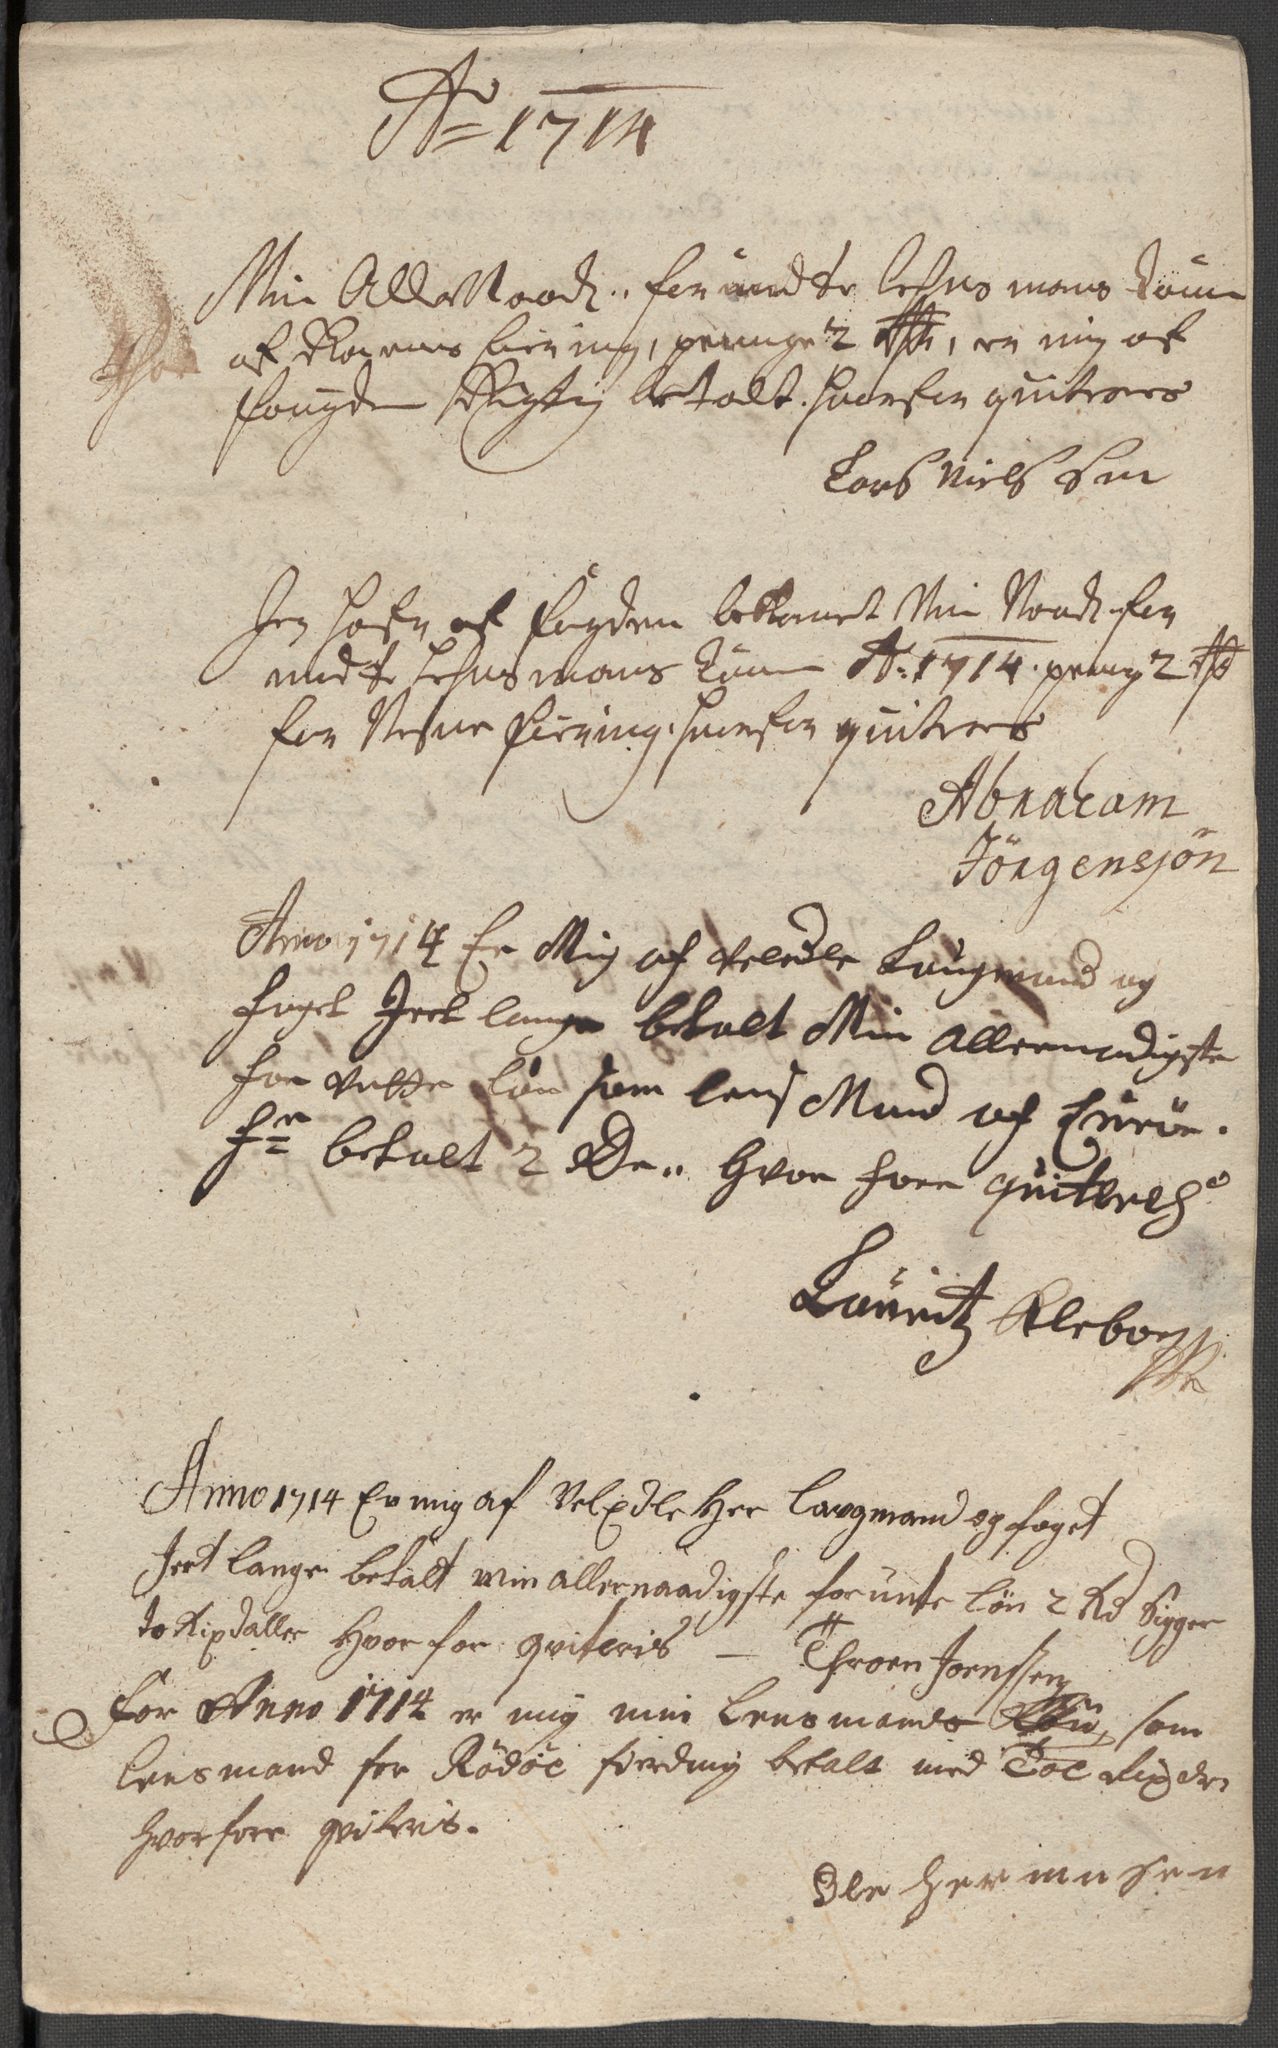 Ao 1714
Min Allernaad: forundte Lehns mans Lönn
af fierning, penge 2 Rdr, er mig af
fougden Rigtig betalt. hvorfor quiteres
Lars Nielssen
Jeg hafr af fogden bekomet Min Naad: for
undte Lehnsmans Lönn Ao: 1714. peng 2 Rdr
for Nesne fierning. hvorfor quiteres
Abraham
Jörgensjön
Anno 1714 Er Mig af Veledle Laugmand og
foget Jert lange betalt Min allernadigste
for untte lön som lens Mand af
betalt 2 Dr. hvor fore quiterels
Lauritz Klebor
Anno 1714 Er mig af VelEdle Her Laugmand og foget
Jert Lange betalt min allernaadigste forunte lön 2 Rd Sigger
to Rixdaller Hvor for qviteris — Throen Joenssen
For Anno 1714 er mig min Lensmands Lön, som
Lensmand for Rödöe fierding betalt med Toe Rixdr
hvorfore qviteris.
Ole Hermansen